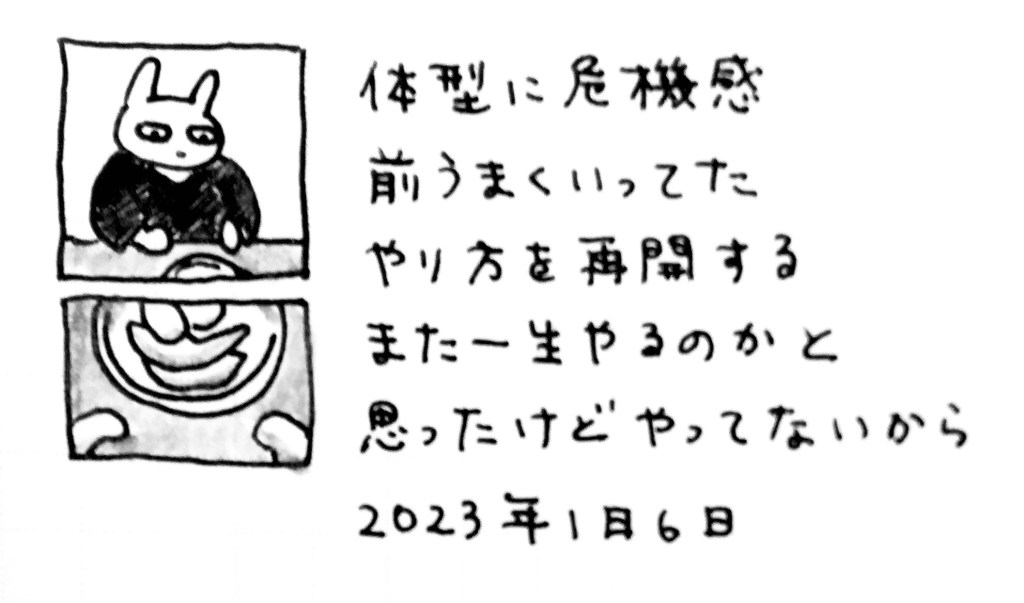 体型に危機感
前うまくいってた
やり方を再開する
また一生やるのかと
思ったけどやってないから
2023年1月6日